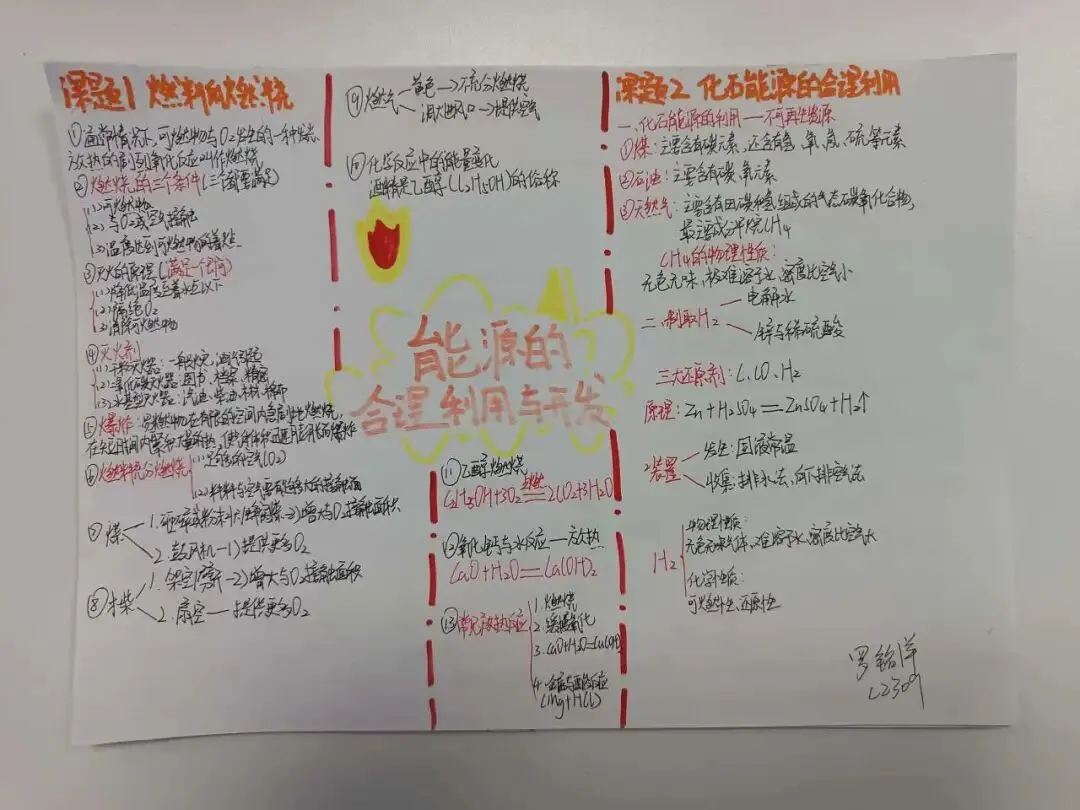 课题1 燃料和燃烧
①通常情况下,可燃物与O2发生的一种发光、
放热的剧烈氧化反应叫作燃烧
②燃烧的三个条件(三个都要满足)
(1)可燃物
(2)与O2或空气接触
(3)温度达到可燃物的着火点
③灭火的原理(满足一个即可)
(1)降低温度至着火点以下
(2)隔绝O2
(3)清除可燃物
④灭火剂
(1)干粉灭火器:一般火灾,油、气等
(2)二氧化碳灭火器:图书、档案、精密
(3)水基型灭火器:汽油、柴油、木材、棉布
⑤爆炸:易燃物在有限的空间内急剧地燃烧,
在短时间内聚积大量的热,使气体体积迅速膨胀而爆炸
⑥燃料充分燃烧
(1)足够的空气(O2)
(2)燃料与空气要有足够大的接触面
⑦煤
1.砸碎或粉末状/蜂窝煤→增大与O2接触面积
2.鼓风机→提供更多O2
⑧木柴
1.架空/劈开→增大与O2接触面积
2.扇空—提供更多O2
⑨燃气
黄色→不充分燃烧
调大进风口→提供空气
⑩化学反应中的能量变化
酒精是乙醇(C2H5OH)的俗称
能源的
合理利用与开发
⑪乙醇燃烧
C2H5OH+3O2 点燃 2CO2+3H2O
⑫氧化钙与水反应—放热
CaO+H2O=Ca(OH)2
⑬常见放热反应
1.燃烧
2.缓慢氧化
3.CaO+H2O=Ca(OH)2
4.金属与酸反应
(Mg+HCl)
课题2 化石能源的合理利用
一、化石能源的利用——不可再生能源
①煤:主要含有碳元素,还含有氢、氧、氮、硫等元素
②石油:主要含有碳、氢元素
③天然气:主要含有由碳和氢组成的气态碳氢化合物,
最主要成分甲烷CH4
CH4的物理性质:
无色无味,极难溶于水,密度比空气小
二、制取H2
电解水
锌与稀硫酸
三大还原剂:C、CO、H2
原理:Zn+H2SO4=ZnSO4+H2↑
装置
发生:固液常温
收集:排水法、向下排空气法
H2
物理性质:
无色无味气体,难溶于水,密度比空气
化学性质:
可燃性、还原性
罗铭洋
C2309